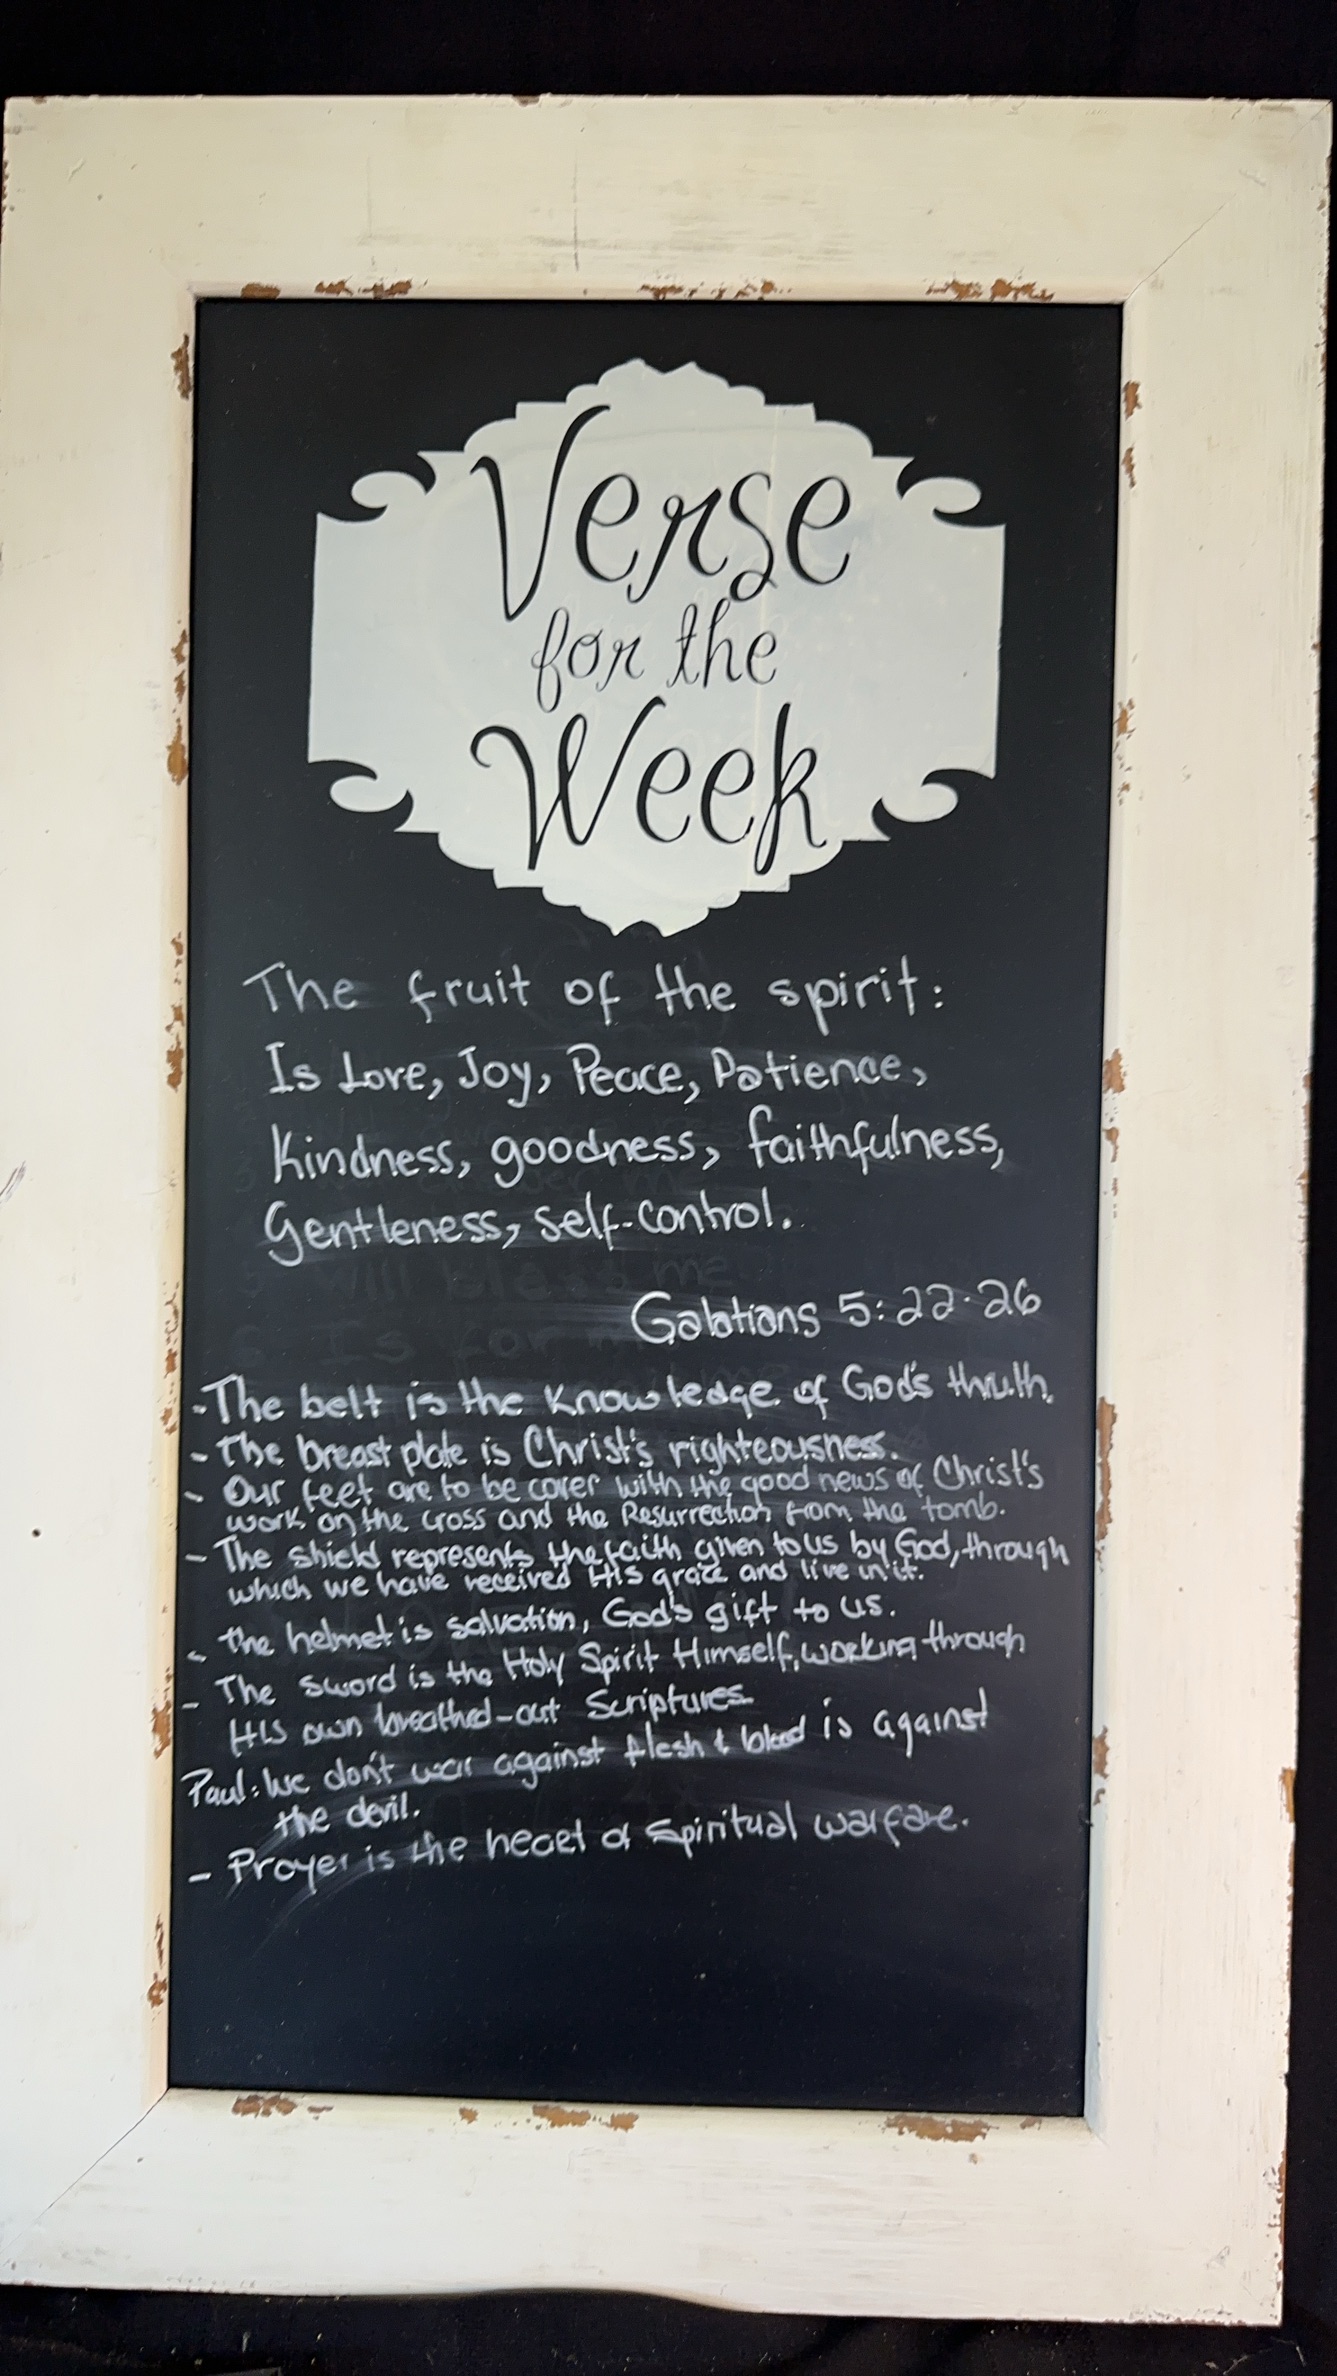 Verse
for the
Week
The fruit of the spirit:
Is Love, Joy, Peace, Patience,
Kindness, goodness, faithfulness,
Gentleness, self-control.
Galatians 5:22-26
-The belt is the Knowledge of God's thruth.
- The breast plate is Christ's righteousness.
- Our feet are to be cover with the good news of Christ's
work on the cross and the Resurrection from the tomb.
- The shield represents the faith given to us by God, through
which we have received His grace and live in it.
- the helmet is salvation, God's gift to us.
- The sword is the Holy Spirit Himself, working through
His own breathed-out Scriptures
Paul: We don't war against flesh & blood is against
the devil.
- Prayer is the heart of spiritual warfare.